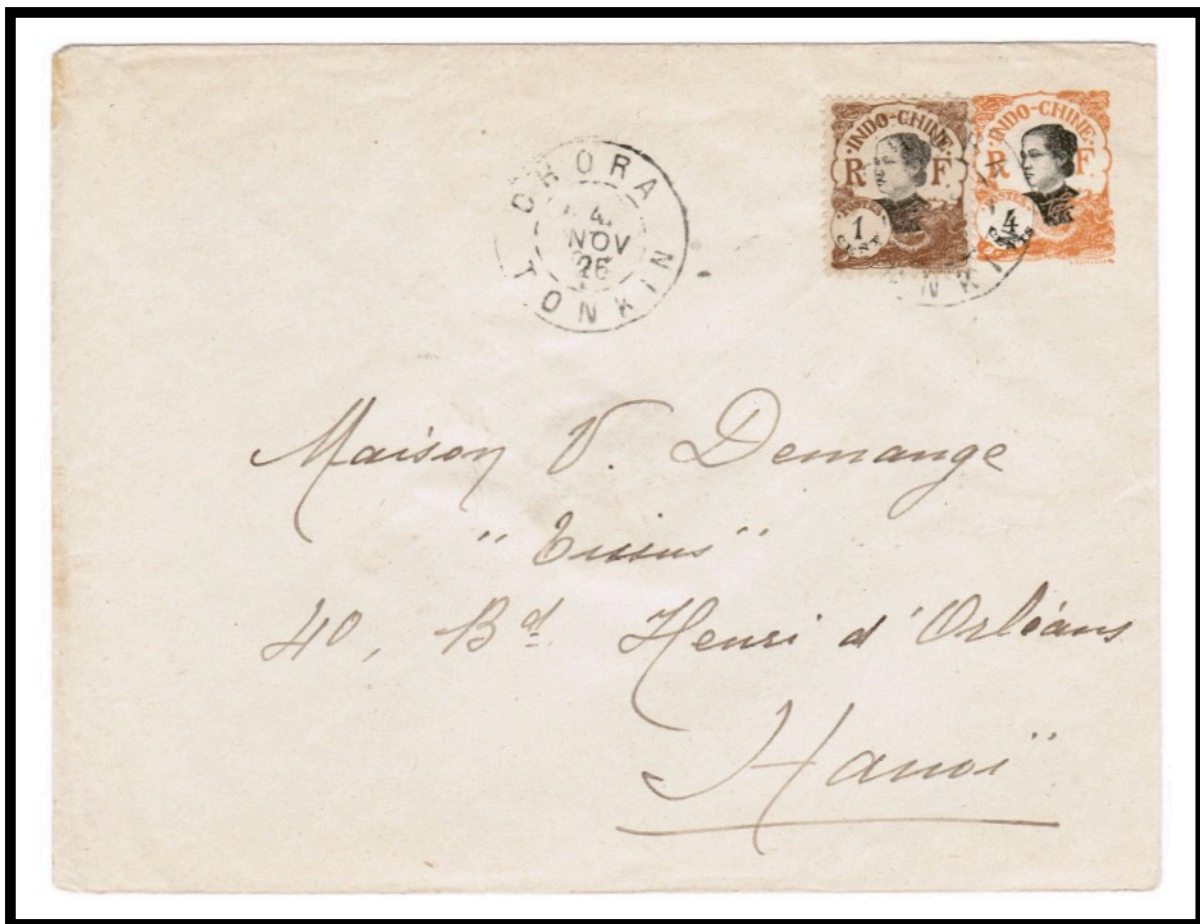 CHORA
4
NOV
26
TONKIN
INDO-CHINE
R F
POSTES
1
CENT
INDO-CHINE
R F
POSTES
4
CENTS
Maison V. Demange
"Tissus"
40, Bd Henri d'Orléans
Hanoï